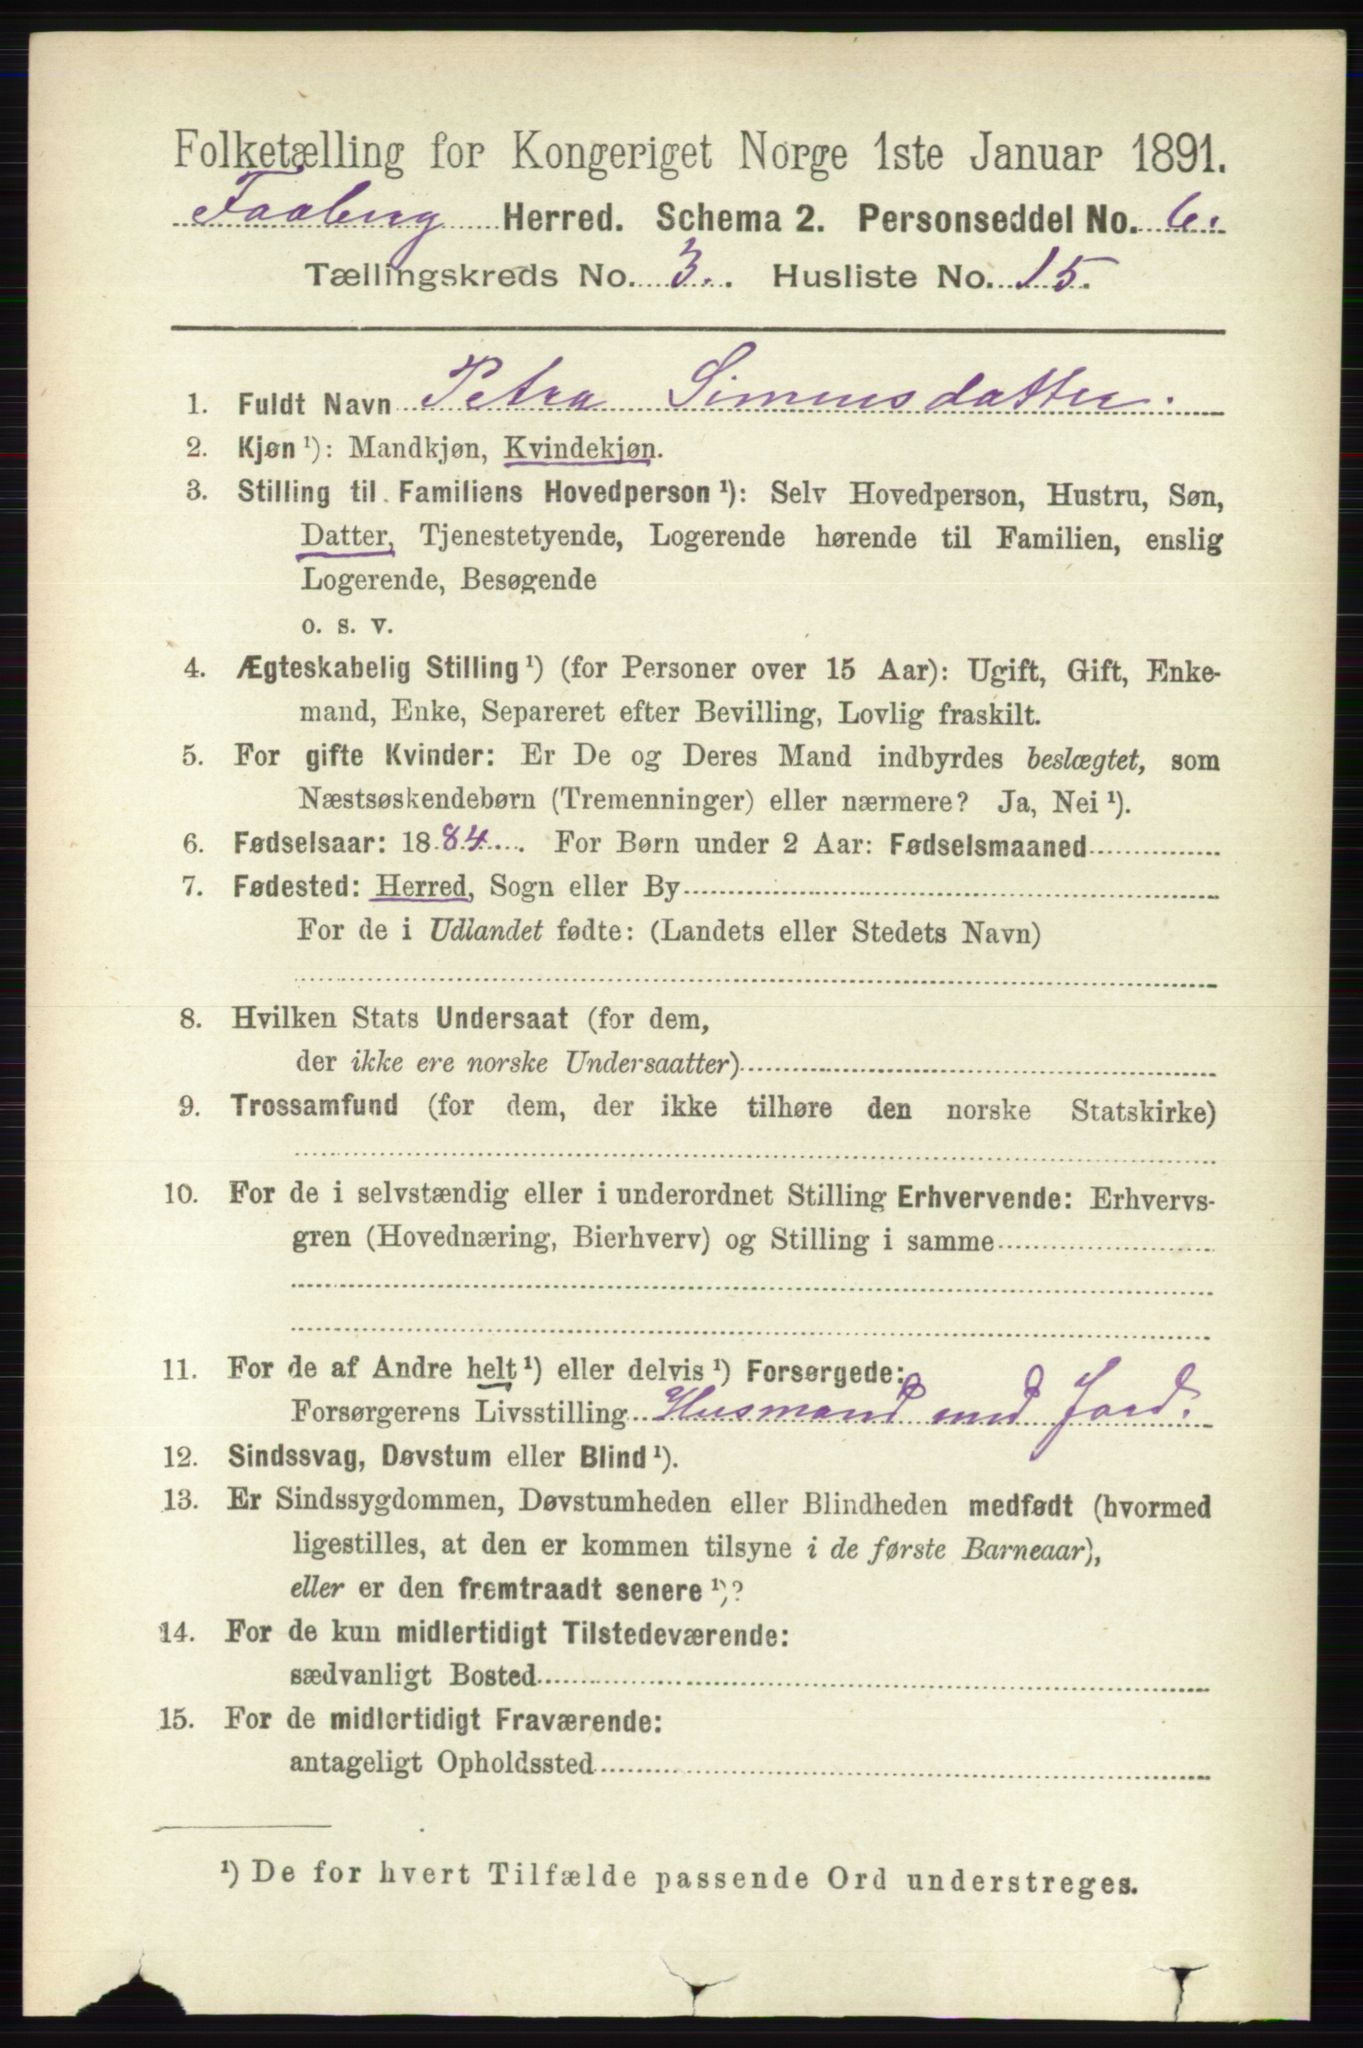 Folketælling for Kongeriget Norge 1ste Januar 1891.
Faaberg Herred. Schema 2. Personseddel No. 6.
Tællingskreds No. 3. Husliste No. 15.
1. Fuldt Navn Petra Simensdatter.
2. Kjøn ¹): Mandkjøn, Kvindekjøn.
3. Stilling til Familiens Hovedperson ¹): Selv Hovedperson, Hustru, Søn,
Datter, Tjenestetyende, Logerende hørende til Familien, enslig
Logerende, Besøgende
o. s. v.
4. Ægteskabelig Stilling ¹) (for Personer over 15 Aar): Ugift, Gift, Enke-
mand, Enke, Separeret efter Bevilling, Lovlig fraskilt.
5. For gifte Kvinder: Er De og Deres Mand indbyrdes beslægtet, som
Næstsøskendebørn (Tremenninger) eller nærmere? Ja, Nei ¹).
6. Fødselsaar: 1884. For Børn under 2 Aar: Fødselsmaaned
7. Fødested: Herred, Sogn eller By
For de i Udlandet fødte: (Landets eller Stedets Navn)
8. Hvilken Stats Undersaat (for dem,
der ikke ere norske Undersaatter)
9. Trossamfund (for dem, der ikke tilhøre den norske Statskirke)
10. For de i selvstændig eller i underordnet Stilling Erhvervende: Erhvervs-
gren (Hovednæring, Bierhverv) og Stilling i samme
11. For de af Andre helt ¹) eller delvis ¹) Forsørgede:
Forsørgerens Livsstilling Husmand med Jord.
12. Sindssvag, Døvstum eller Blind ¹).
13. Er Sindssygdommen, Døvstumheden eller Blindheden medfødt (hvormed
ligestilles, at den er kommen tilsyne i de første Barneaar),
eller er den fremtraadt senere ¹)?
14. For de kun midlertidigt Tilstedeværende:
sædvanligt Bosted
15. For de midlertidigt Fraværende:
antageligt Opholdssted
¹) De for hvert Tilfælde passende Ord understreges.